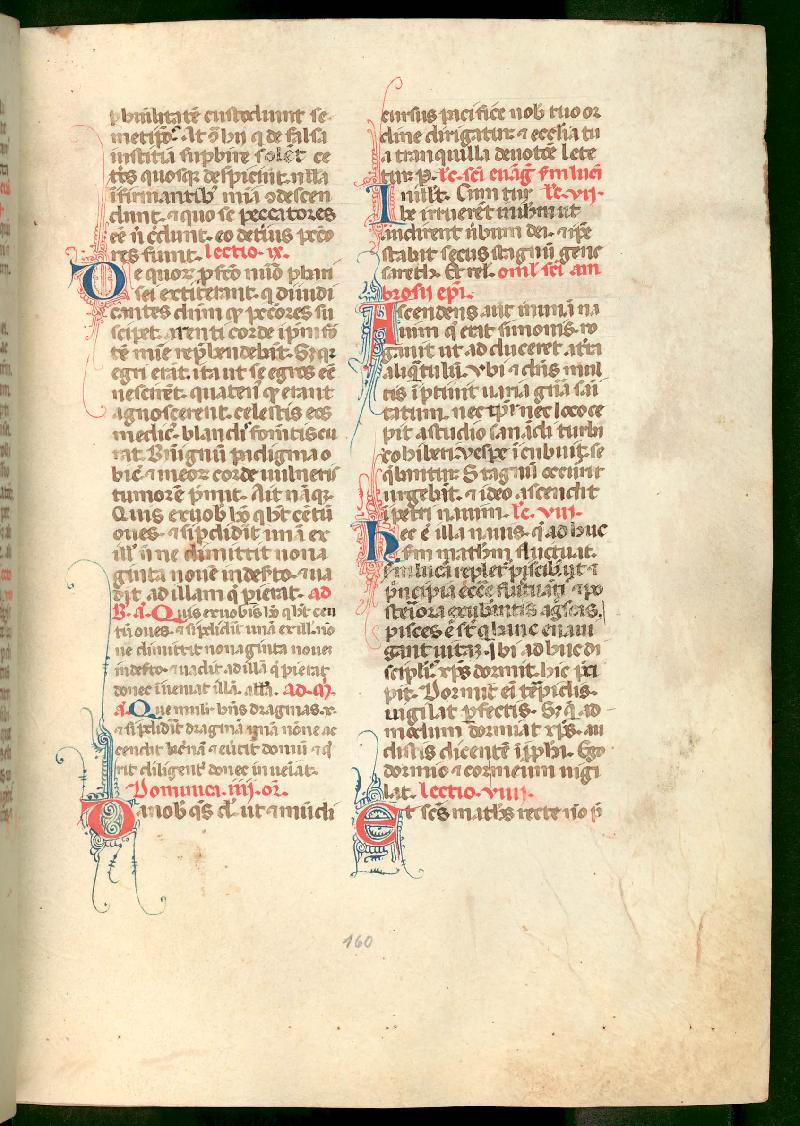 humilitatē custodiunt se
metip̄os. At ōs hii q̄ de falsa
iusticia supbire solēt ce
tos quosq; despiciūt. nlla
īfirmantib' mīa ꝯdescen
dunt. ⁊ quo se peccatores
eē n̄ cᵉdunt. eo deti'us pc̄co
res fiunt. lectio .ix.
De quor̄ p̄fco nūō phari
sei extiterant. q̄ diiudi
cantes dnm q̄ pc̄cores su
scipet. arenti corde ip̄m fō
tē mīe rep̄hendebāt. S; q̄r
egri erāt. ita ut se egros eē
nescirēt. quaten' q̄ erant
agnoscerent. celestis eos
medic'. blandis fomētis cu
rat. Bn̄ignū padigma o
bic̄. ⁊ in eor̄ corde uulneris
tumorē p̄mit. Ait nāq;.
Quis ex uob̄ hō q̄ ht̄ centū
oues. ⁊ si p̄didit unā ex
ill' n̄ne dimittit nona
ginta nouē in deserto. ⁊ ua
dit ad illam q̄ pierat. ad
b. a. Quis ex uobis hō q̄ ht̄ cen
tū oues. ⁊ si p̄didit unā ex ill'. nō
ne dimittit nonaginta nouē
in deserto. ⁊ uadit ad illā q̄ pierat
donec īueniat illā. all'a. ad. m̄.
a. Que muli' hn̄s dragmas. x.
⁊ si p̄didit dragmā unā nōne ac
cendit lucnā ⁊ euertit domū ⁊ q̄
rit diligent' donec inueiat.
Domīnica. iiij. or.
Da nob̄ q̄s dn̄e ut ⁊ mūdi
cursus pacifice nob̄ tuo or
dine dirigatur. ⁊ ecclīa tu
a tranquilla deuotōe lete
tur. p. lc̄. sc̄i euāg. s̄m lucā
In illo t. Cum tur lc̄. vij.
be irruerēt in ih̄m ut
audirent ūbum dei. ⁊ ip̄e
stabat secus stagnū gene
sareth. Et rel. oml'. sc̄i am
brosij ep̄i.
Ascendens aut in unā na
uim q̄ erat simonis. ro
gauit ut ad duceret at̄ra
aliq̄ntulū. Vbi ⁊ dn̄s mul
tis īptiuit uaria gn̄a sani
tatum. nec tp̄r nec loco ce
pit a studio sanādi turbā
cohiberi. vespe īcubuit. se
q̄bantur. Stagnū occurit
urgebāt. ⁊ ideo ascendit
ī petri nauim. lc̄. viij.
Hec ē illa nauis. q̄ adhuc
s̄m math̄m fluctuat.
s̄m lucā replet̄ piscib;. ut ⁊
p̄ncipia ecc̄e fluctuātis ⁊ po
steriora exubantis agscas.
pisces ē st̄ q̄ hanc enaui
gant uitā. Ibi adhuc di
scipl'is xp̄s dormit. hic p̄ci
pit. Dormit ei tepidis.
uigilat p̄fectis. S; q̄ ad
modum dormiat xp̄s. au
distis dicentē ī pphā. Ego
dormio ⁊ cor meum uigi
lat. lectio. viiij.
Et sc̄s math̄s recte nō p̄
160